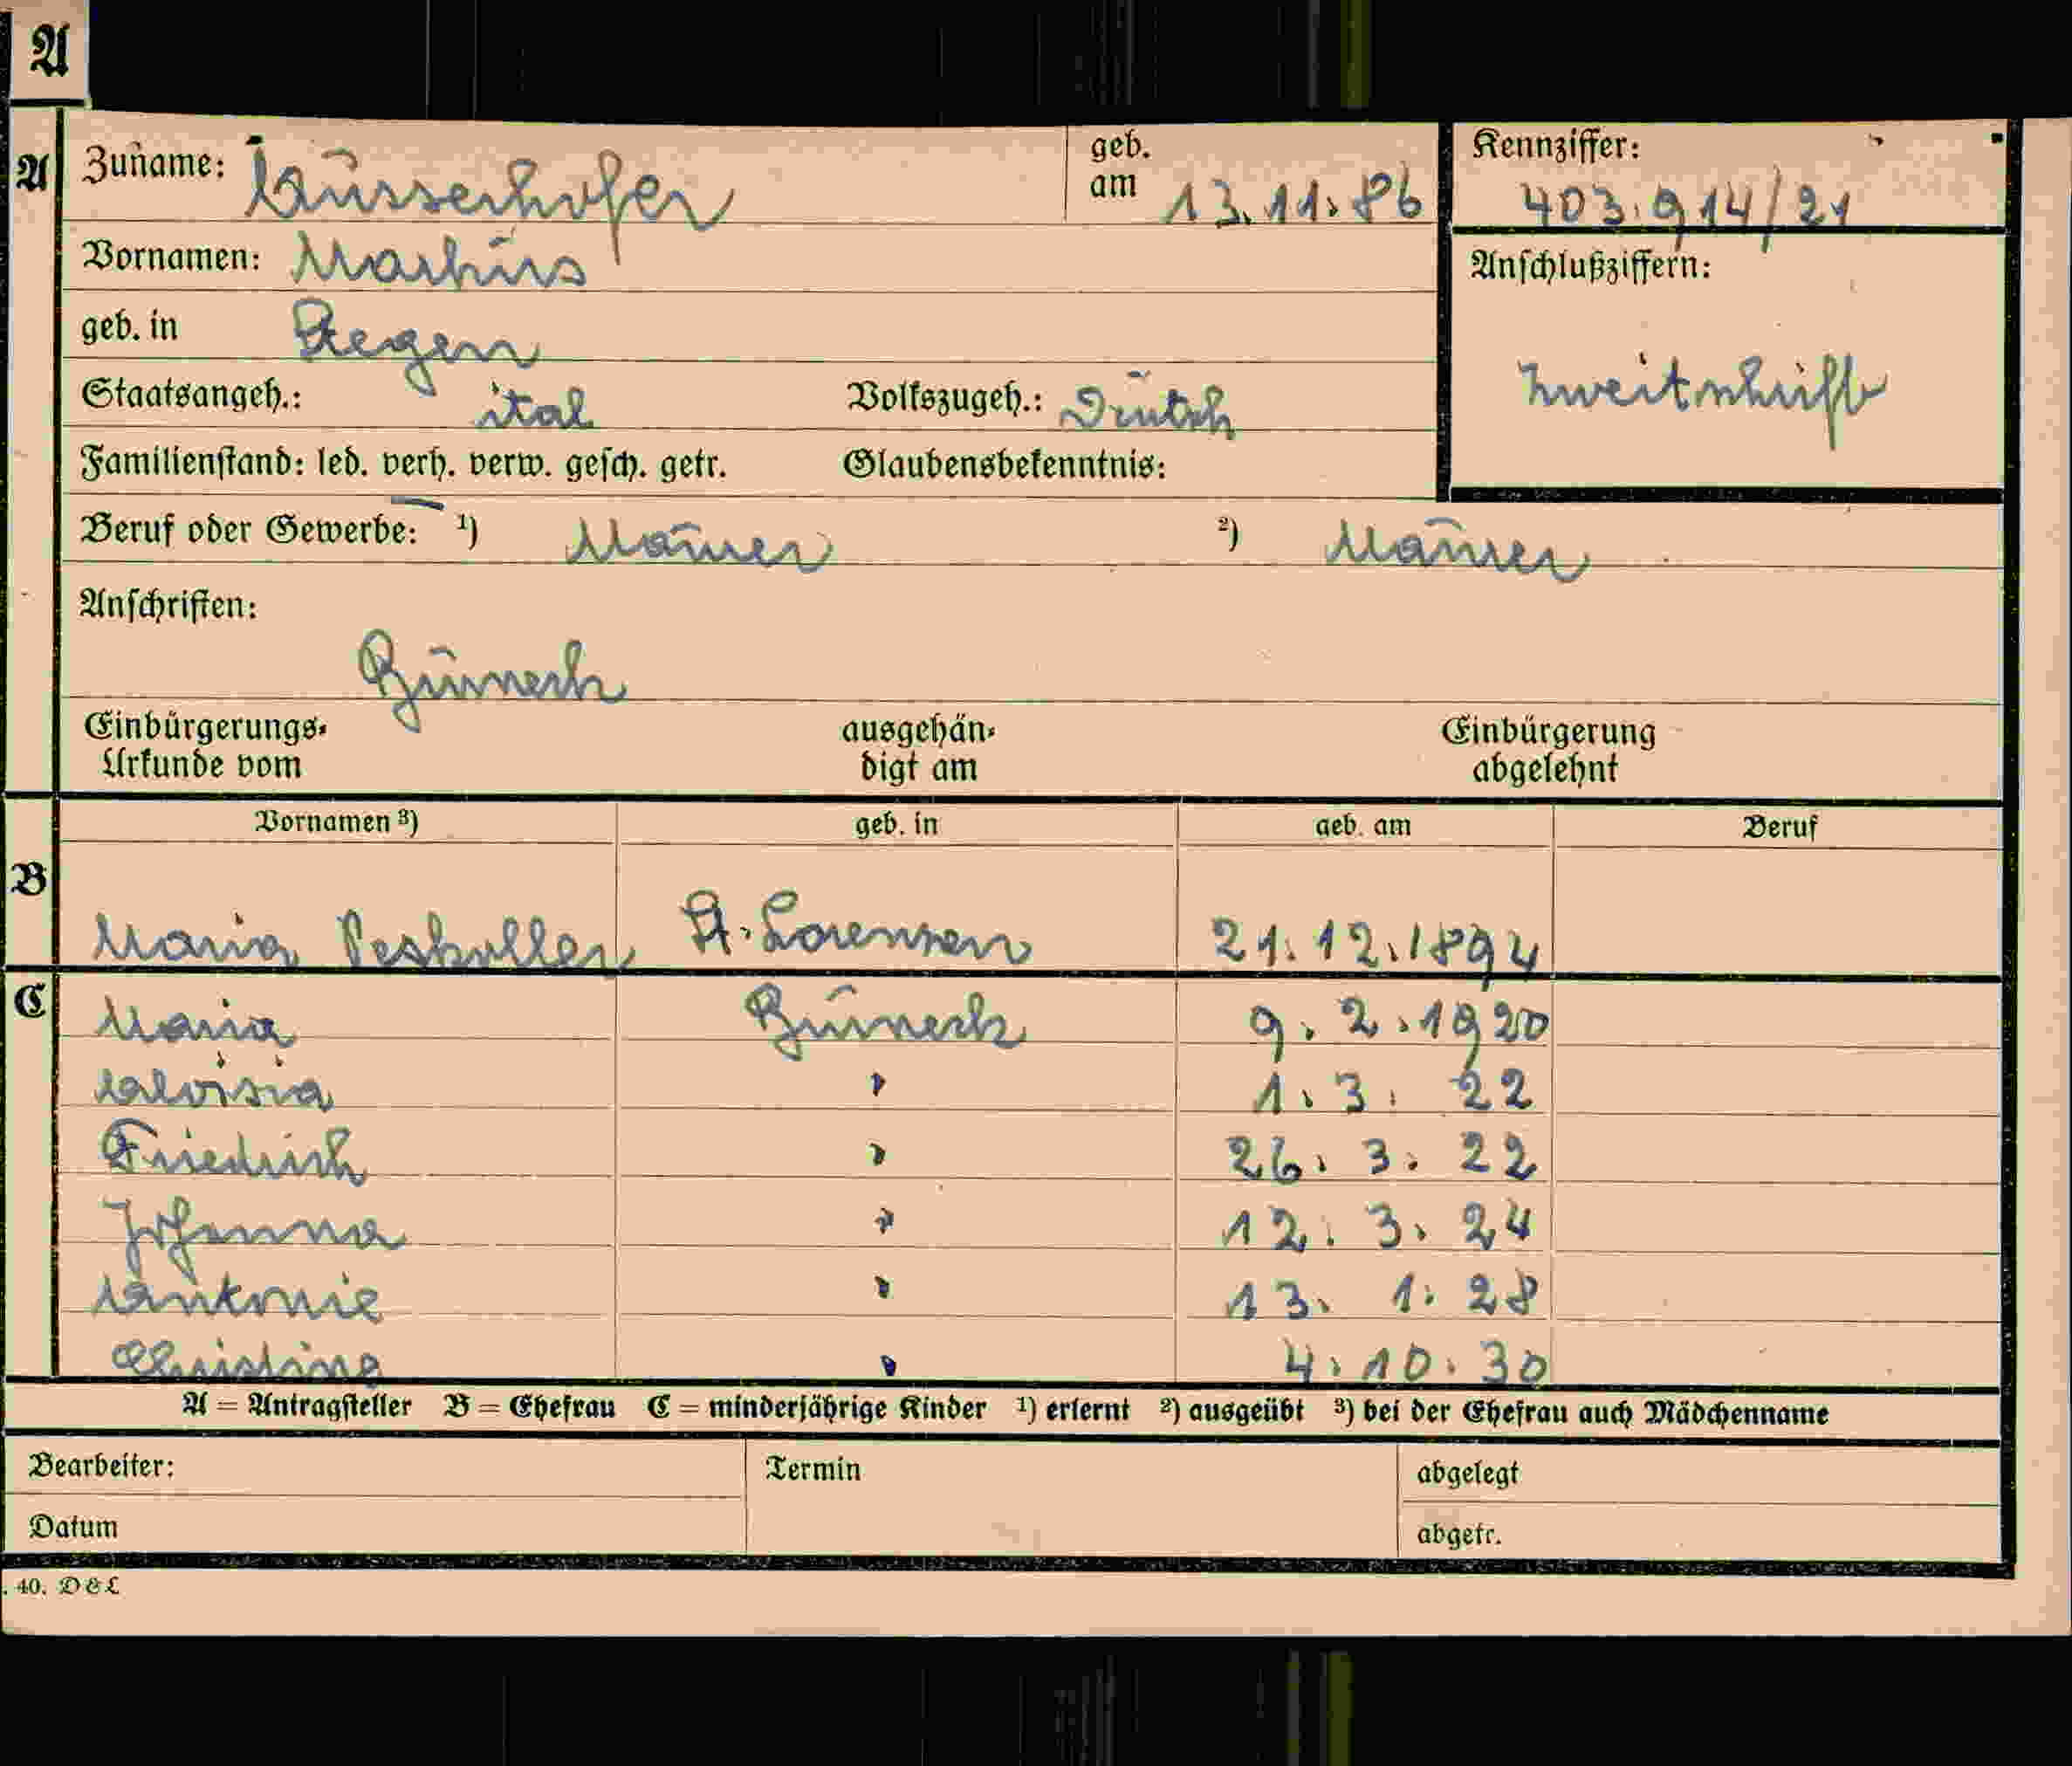 A
A
Zuname: Ausserhofer
geb. am 13.11.86
Kennziffer: 403.914/21
Vornamen: Markus
Anschlußziffern:
geb. in Stegen
Zweitschrift
Staatsangeh.: ital
Volkszugeh.: Deutsch
Familienstand: led. verh. verw. gesch. getr.
Glaubensbekenntnis:
Beruf oder Gewerbe: 1) Maurer 2) Maurer
Anschriften:
Bruneck
Einbürgerungs- ausgehän- Einbürgerung
Urkunde vom digt am abgelehnt
Vornamen 3) geb. in geb. am Beruf
B
Maria Peskoller St. Lorenzen 21.12.1894
C
Maria Bruneck 9.2.1920
Aloisia " 1.3. 22
Friedrich " 26. 3. 22
Johanna " 12. 3. 24
Antonie " 13. 1. 28
Christina " 4.10.30
A = Antragsteller B = Ehefrau C = minderjährige Kinder 1) erlernt 2) ausgeübt 3) bei der Ehefrau auch Mädchenname
Bearbeiter: Termin abgelegt
Datum abgetr.
. 40. D & L